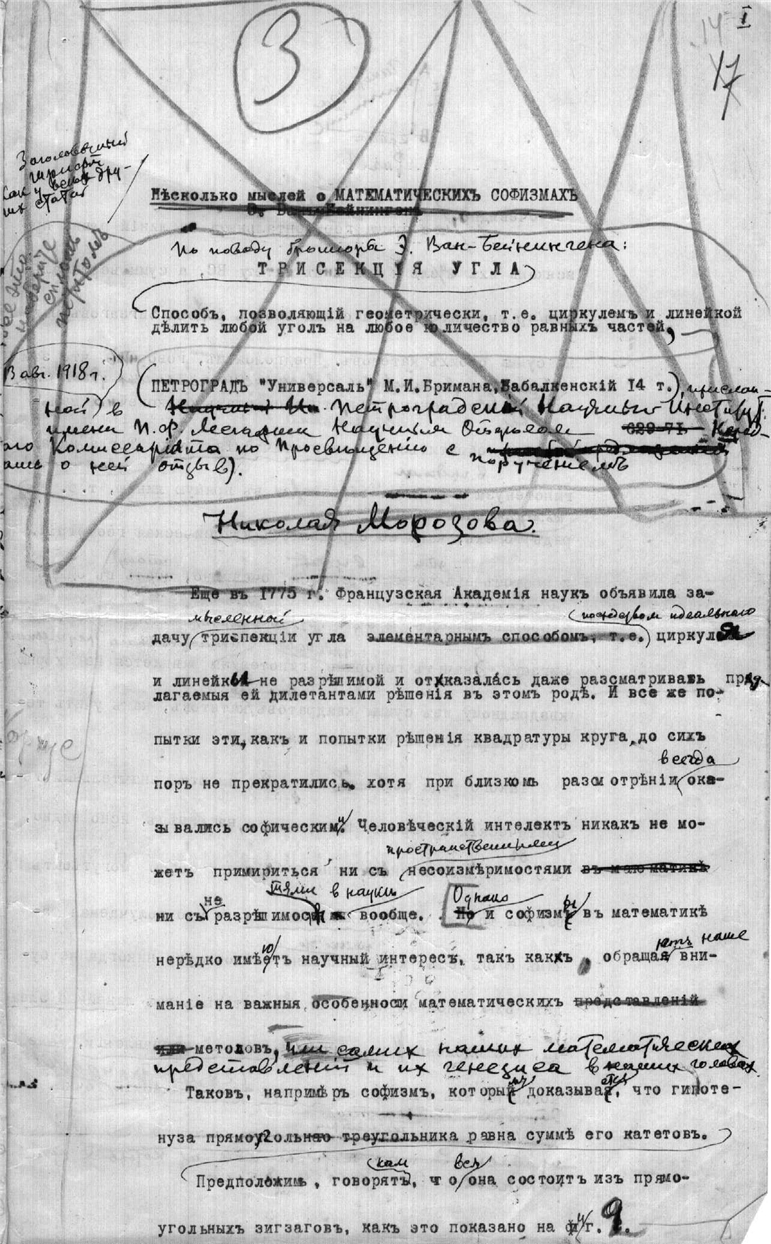 I
14
17
3
Заголовочный
шрифт
как у всех дру-
гих статей
Нѣсколько мыслей о МАТЕМАТИЧЕСКИХЪ СОФИЗМАХЪ
По поводу брошюры Э. Ван-Бейнингена:
ТРИСЕКЦІЯ УГЛА
Способъ, позволяющій геометрически, т.е. циркулемъ и линейкой
дѣлить любой уголъ на любое количество равныхъ частей,
3 авг. 1918 г.
(ПЕТРОГРАДЪ "Универсаль" М.И.Бримана, Забалкенскій 14 т.), прислан-
ной в Петроградский Научный Институт
имени П.Ф. Лесгафта Научным Отделом 629-71 Народ-
ого Комиссариата по Просвещению с поручениемъ
дать о ней отзыв).
Николая Морозова.
Еще въ 1775 г. Французская Академія наукъ объявила за-
мысленной посредством идеального
дачу трисекціи угла элементарнымъ способомъ, т.е. циркуля
и линейки не разрѣшимой и отказалась даже разсматривать пред-
лагаемыя ей дилетантами рѣшенія въ этомъ родѣ. И все же по-
пытки эти, какъ и попытки рѣшенія квадратуры круга, до сихъ
всегда
поръ не прекратились, хотя при близкомъ разсмотрѣніи ока-
зывались софическими. Человѣческій интелектъ никакъ не мо-
пространственными
жетъ примириться ни съ несоизмѣримостями въ математикѣ
не тями в науке Однако
ни съ разрѣшимос вообще. Но и софизмы въ математикѣ
ю ютъ наше
нерѣдко имѣетъ научный интересъ, такъ какъ обращая вни-
маніе на важныя особенности математическихъ представленій
или методовъ, или самих наших математических
представлений и их генезиса в наших головах.
Таковъ, напримѣръ софизмъ, который доказывая, что гипоте-
нуза прямоугольнаго треугольника равна суммѣ его катетовъ.
нам вся
Предположимъ, говорятъ, что она состоитъ изъ прямо-
угольныхъ зигзаговъ, какъ это показано на фиг. 9.